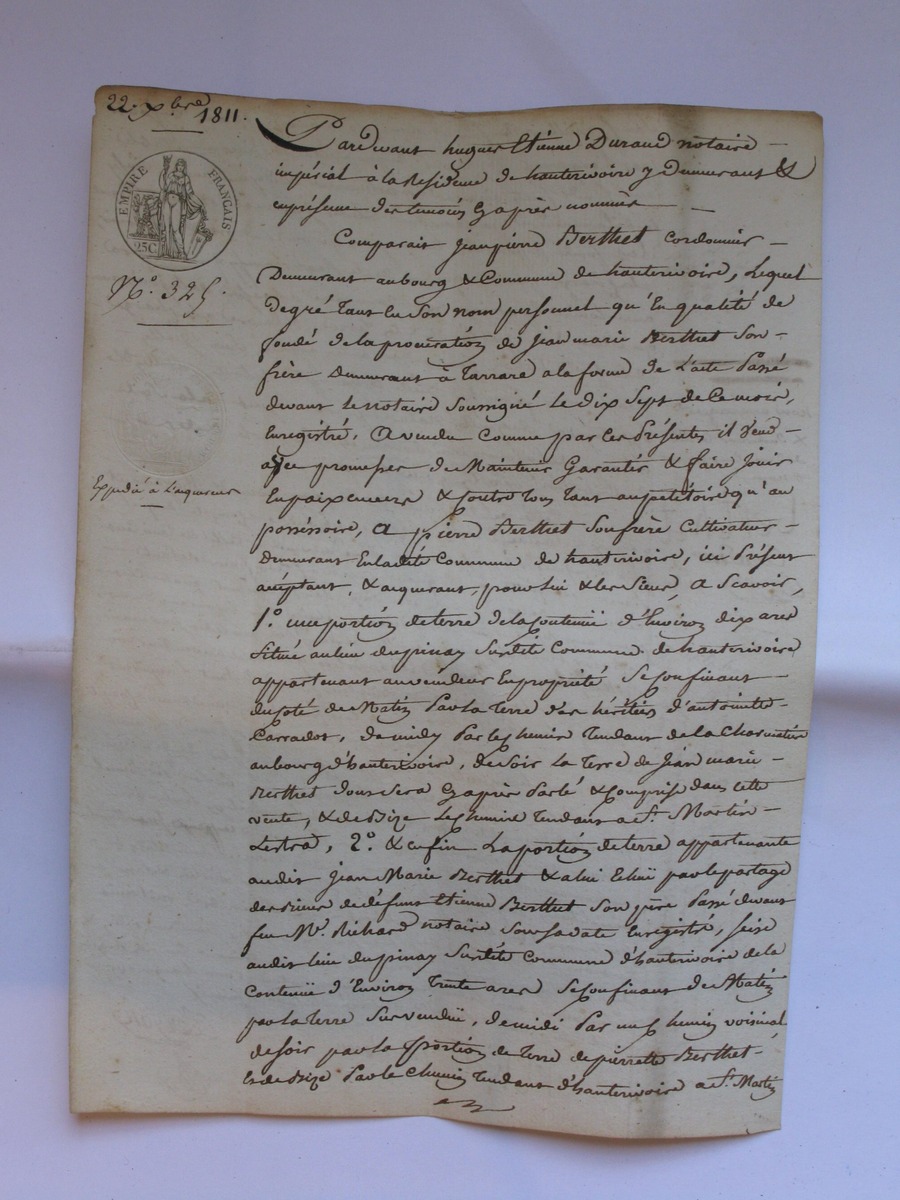 22. Xbre 1811.
EMPIRE FRANÇAIS
25C
N.º 325.
Expedié à L'aquereur
Pardevant hugues Etienne Durand notaire
impérial à la Residence de hauterivoire y Demeurant &
en présence des temoins Cy après nommés
Comparait Jeanpierre Berthet Cordonnier
Demeurant au bourg & Commune de hauterivoire, Lequel
De gré tant En Son nom personnel qu'En qualité de
fondé de la procuration de Jean marie Berthet Son
frère Demeurant à Tarrare a la forme de L'acte Passé
devant Le notaire Soussigné Le dix Sept de Ce mois,
Enregistré, A vendu Comme par Ces Présentes il Vend
avec promesses de Maintenir Garantir & faire Jouir
En paix envers & Contre tous tant au petitoire qu'au
posséssoire, A pierre Berthet Son frère Cultivateur
Demeurant En ladite Commune de hauterivoire, ici Présent
acéptant, & aquerant, pour lui & les Siens, A Scavoir,
1.º une portion de terre de la Contenüe d'Environ dix ares
Située au lieu du pinay Surdite Commune de hauterivoire
appartenant au vendeur En propriété Se Confinant
du Coté de Matin Par la Terre des héritiers d'antoinette
Carradot, de midy Par le Chemin Tendant de la Charnetière
au bourg d'hauterivoire, de Soir La Terre de Jean marie
Berthet dont Sera Cy après Parlé & Comprise dans cette
vente, & de Bize Le Chemin Tendant a St. Martin
Lestra, 2.º & enfin La portion de terre appartenante
audit Jean Marie Berthet & a lui Echüe par le partage
des Biens de défunt Etienne Berthet Son père Passé devant
feu Me. Richard notaire Sous Sa date Enregistré, Seise
audit lieu du pinay Surdite Commune d'hauterivoire de la
Contenüe d'Environ Trente ares Se Confinant de Matin
par la Terre Sus vendüe, de midi Par un Chemin voisinal
de Soir par la portion de Terre de pierrette Berthet
& de Bize Par le Chemin Tendant d'hauterivoire a St. Martin